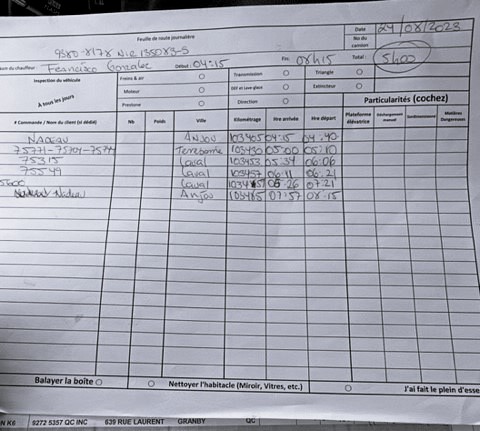 Feuille de route journalière
Date 24/08/2023
No du camion
9380-8178 N.R 135083-5
Nom du chauffeur: Francisco Gonzalez Début: 04:15 Fin: 08h15 Total: 5h00
Inspection du véhicule Freins & air Transmission Triangle
À tous les jours Moteur Extincteur
Prestone Direction Particularités (cochez)
# Commande / Nom du client (si dédié) Nb Poids Ville Kilométrage Hre arrivée Hre départ Plateforme élévatrice Déchargement manuel Matières Dangereuses
NADEAU ANJOU 103405 04:15 04:40
Terrebonne 103430 05:00 05:10
75315 Laval 103453 05:34 06:06
75549 Laval 103457 06:11 06:21
Laval 06:26 07:21
Nadeau Anjou 103485 07:57 08:15
Balayer la boîte Nettoyer l'habitacle (Miroir, Vitres, etc.) J'ai fait le plein d'esse
N K6 9272 5357 QC INC 639 RUE LAURENT GRANBY QC